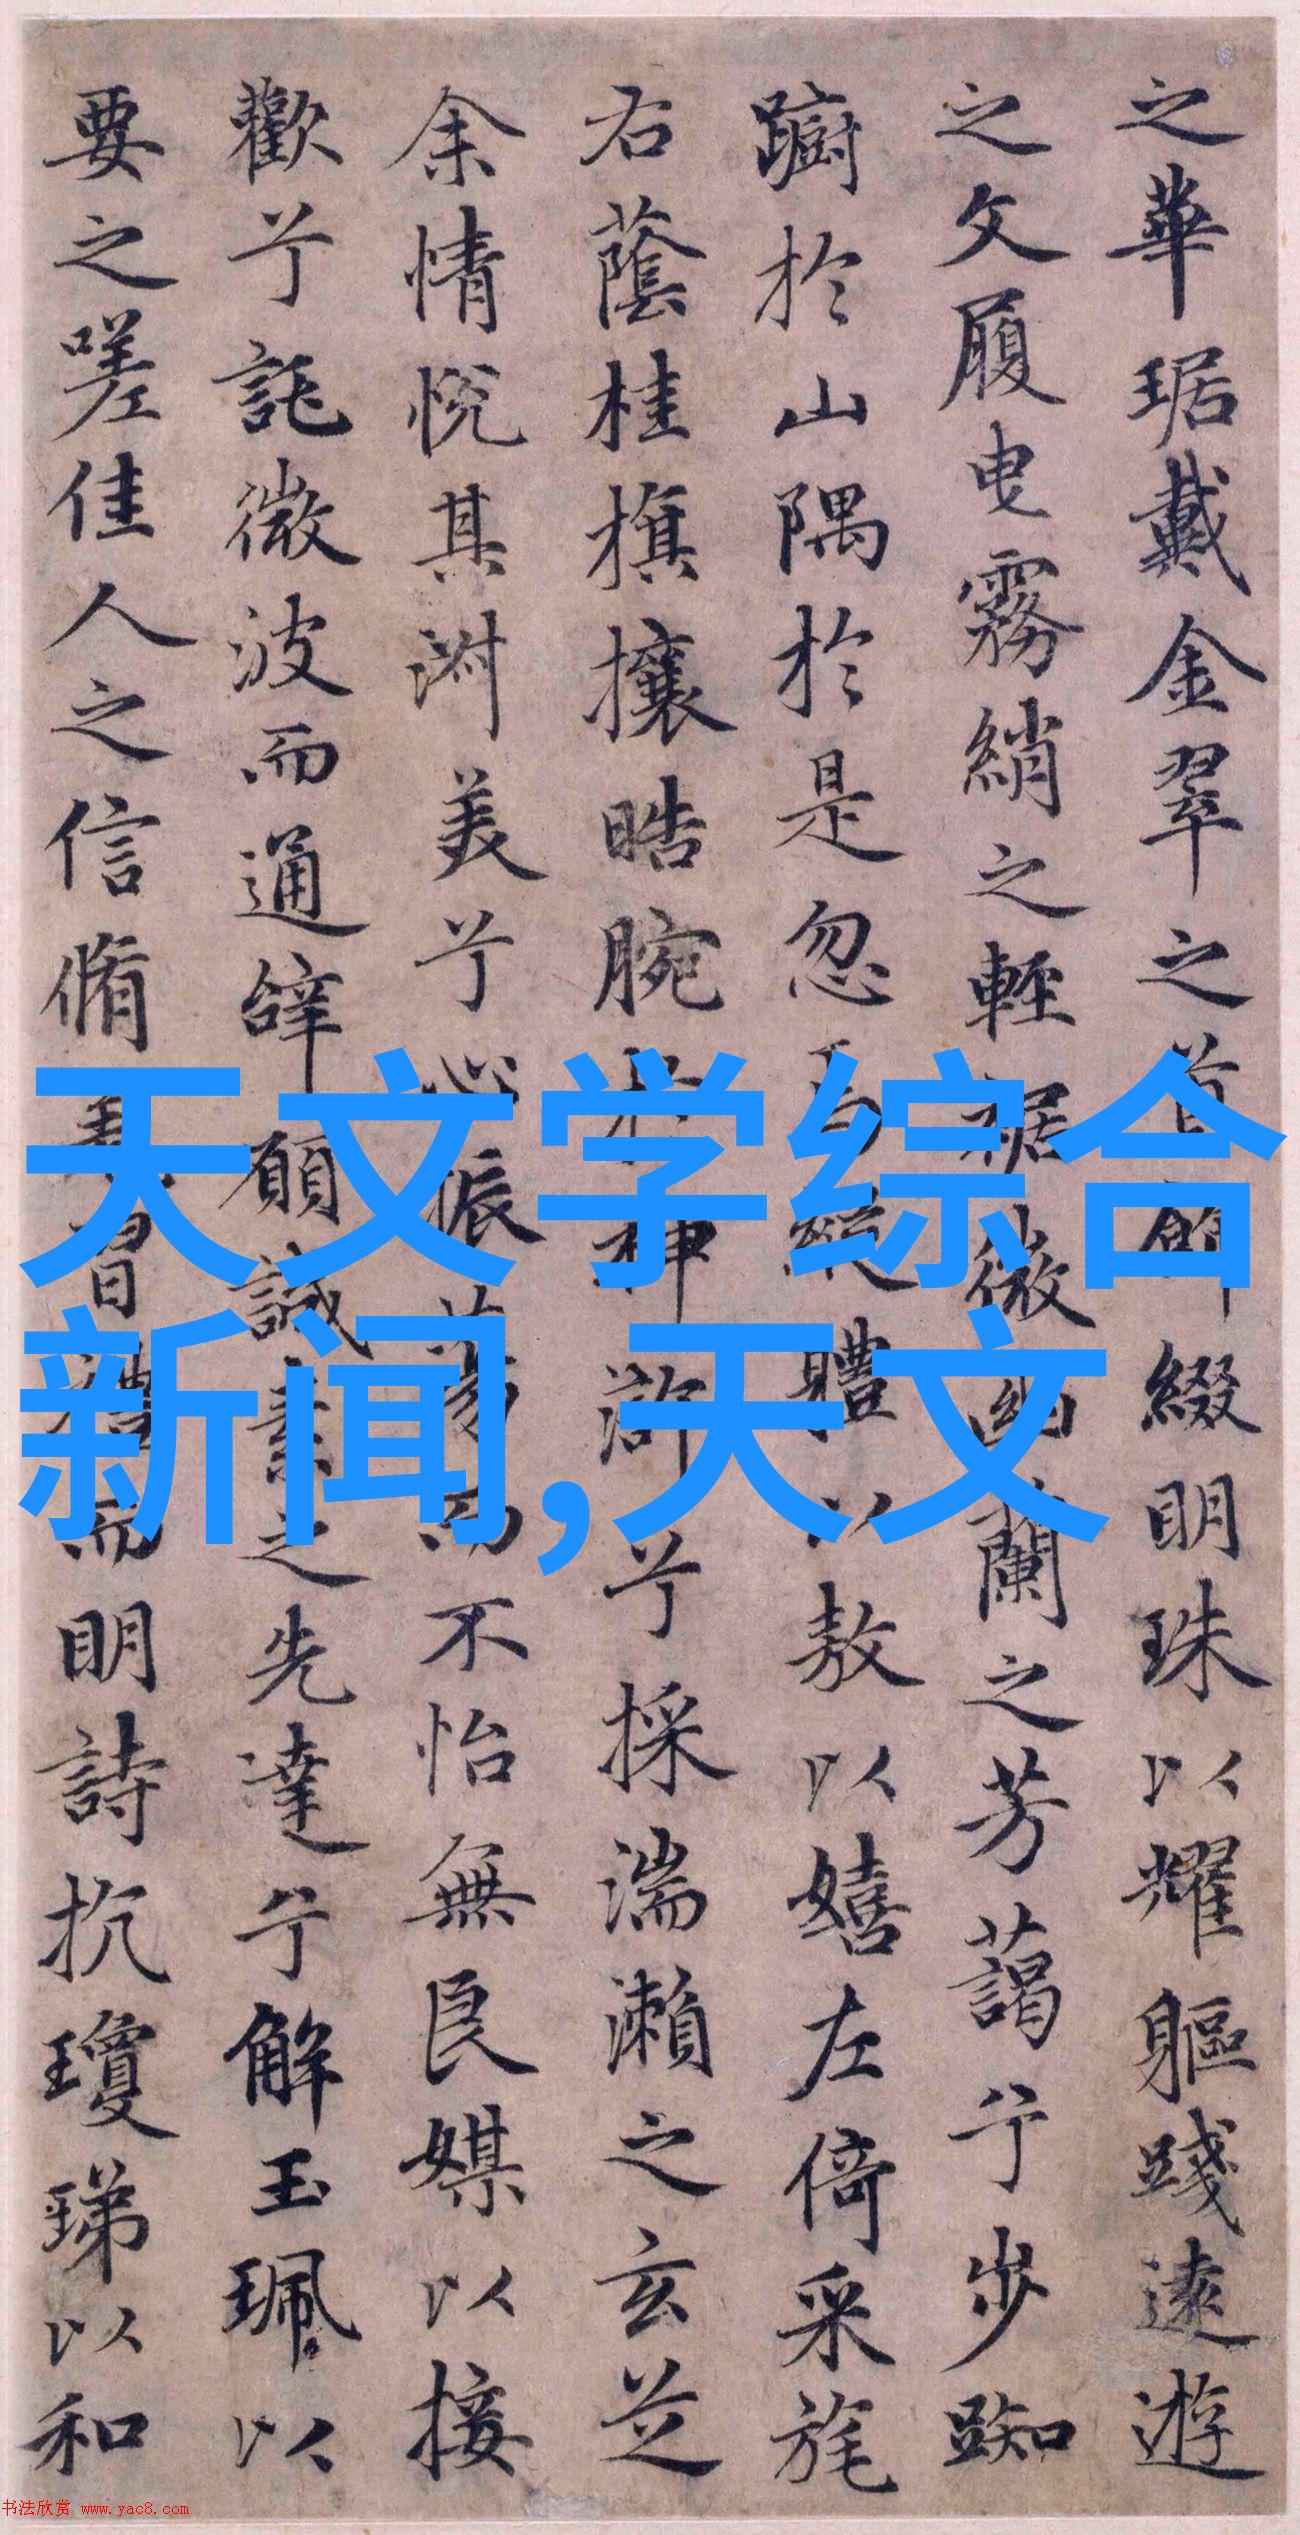 之華琚戴金翠之首飾綴明珠以耀軀踐遠遊
之文履曳霧綃之輕裾微幽蘭之芳藹兮步踟
躕於山隅於是忽焉縱軆以敖以嬉左倚采旄
右蔭桂旗攘晧腕於神滸兮採湍瀨之玄芝
余情悅其淑美兮心振蕩而不怡無良媒以接
歡兮託微波而通辭願誠素之先達兮解玉珮以
要之嗟佳人之信脩羌習禮而明詩抗瓊珶以和
天文学综合
新闻,天文
书法欣赏 www.yac8.com